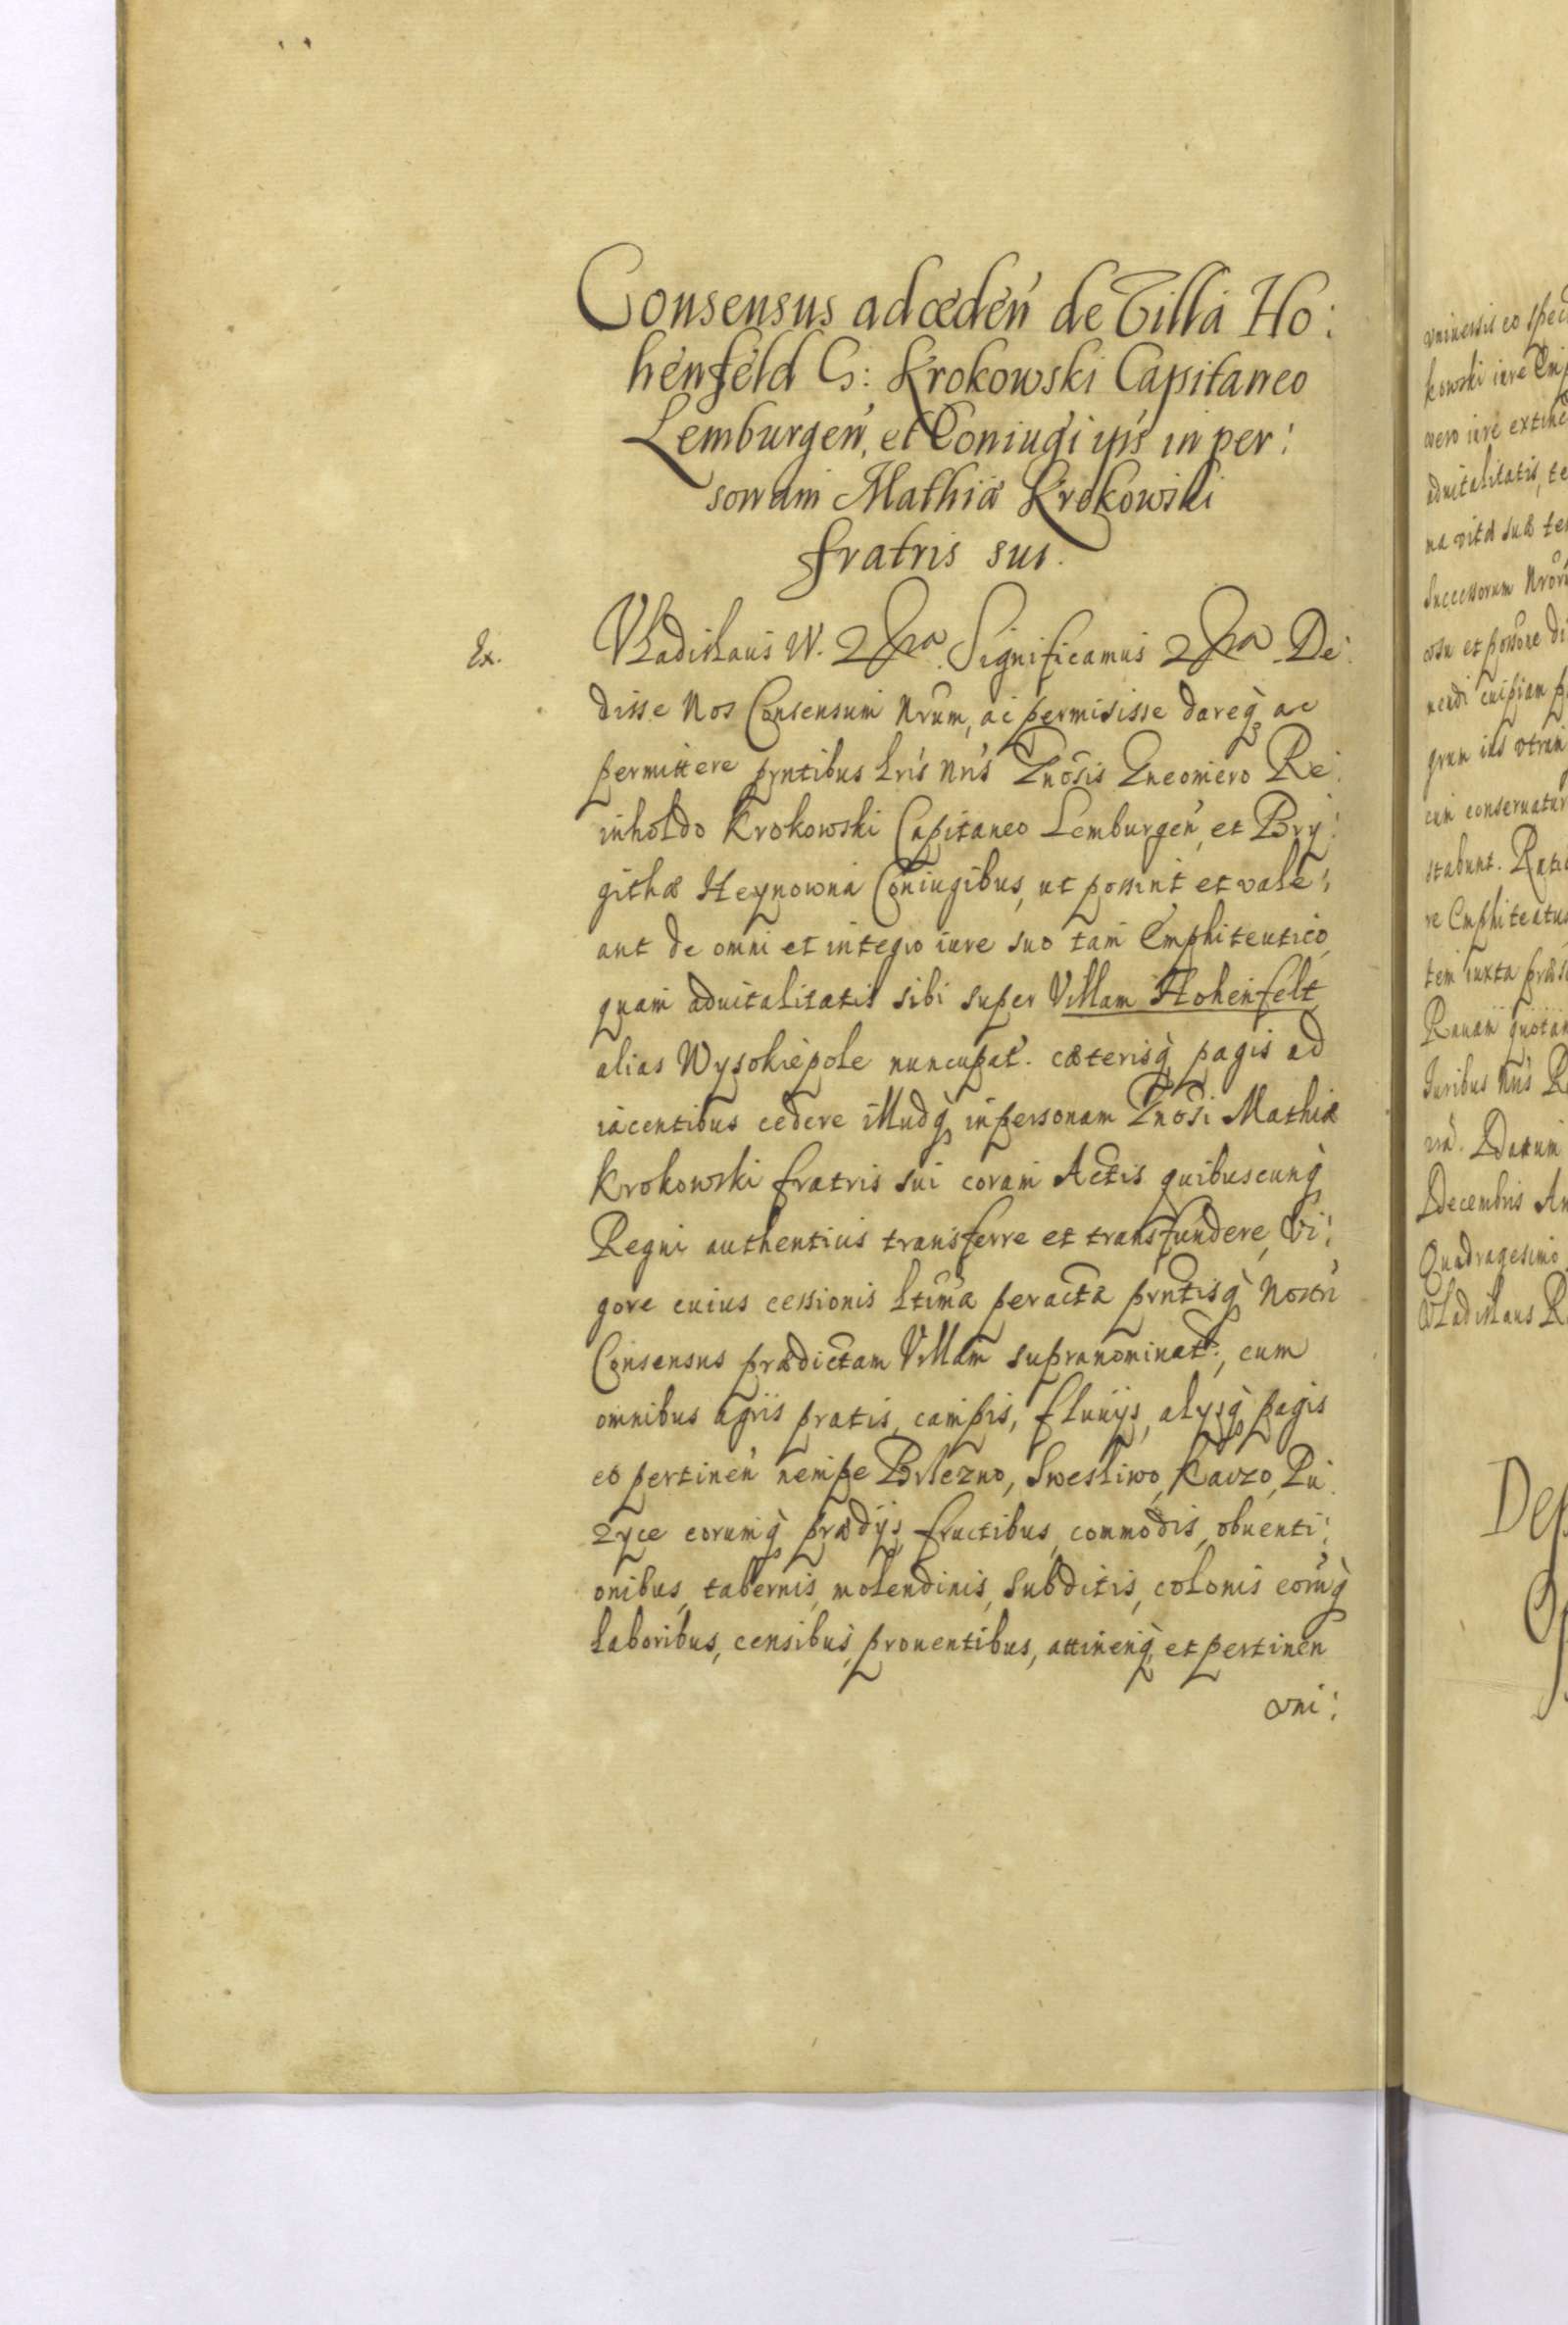 Consensus ad cedeń de Villa Ho:
henfeld G: Krokowski Capitaneo
Lemburgeń, et Coniugi ips in per:
sonam Mathiæ Krokowski
fratris sui.
Ex.
Vladislaus IV. Significamus De:
disse Nos Consensum Nrum, ac permisisse dareq ac
permittere pntibus Lris Nris Gnosis Gneomero Re:
inholdo Krokowski Capitaneo Lemburgeń, et Bry:
githæ Heynowna Coniugibus, ut possint et vale:
ant de omni et integro iure suo tam Emphiteutico,
quam aduitalitatis sibi super Villam Hohenfelt
alias Wysokiepole nuncupat. cæterisq pagis ad
iacentibus cedere illudq in personam Gnosi Mathiæ
Krokowski fratris sui coram Actis quibuscunq
Regni authenticis transferre et transfundere, Vi:
gore cuius cessionis Ltima peracta pntisq Nostri
Consensus prædictam Villam supranominat:, cum
omnibus agris pratis, campis, fluuijs, alysq pagis
eo pertineń nempe Brzezno, Swesliwo, Karzo, Pu:
zyce eorumq prædijs, fructibus, commodis, obuenti:
onibus, tabernis, molendinis, subditis, colonis eorumq
laboribus, censibus, prouentibus, attinenq, et pertinen
vni:
vniuersis eo spec
kowski iure Emp
vero iure extinc
aduitalitatis, te
na vitæ suæ te
Successorum Nror
cosu et possore di
nendi cuipiam
grum ius vtrum
cum conseruatur
stabunt. Ratio
re Emphiteutic
tem iuxta præsc
Rauam quotan
Iuribus Nris R
vra. Datum
Decembris An
Quadragesimo
Vladislaus R
Dep